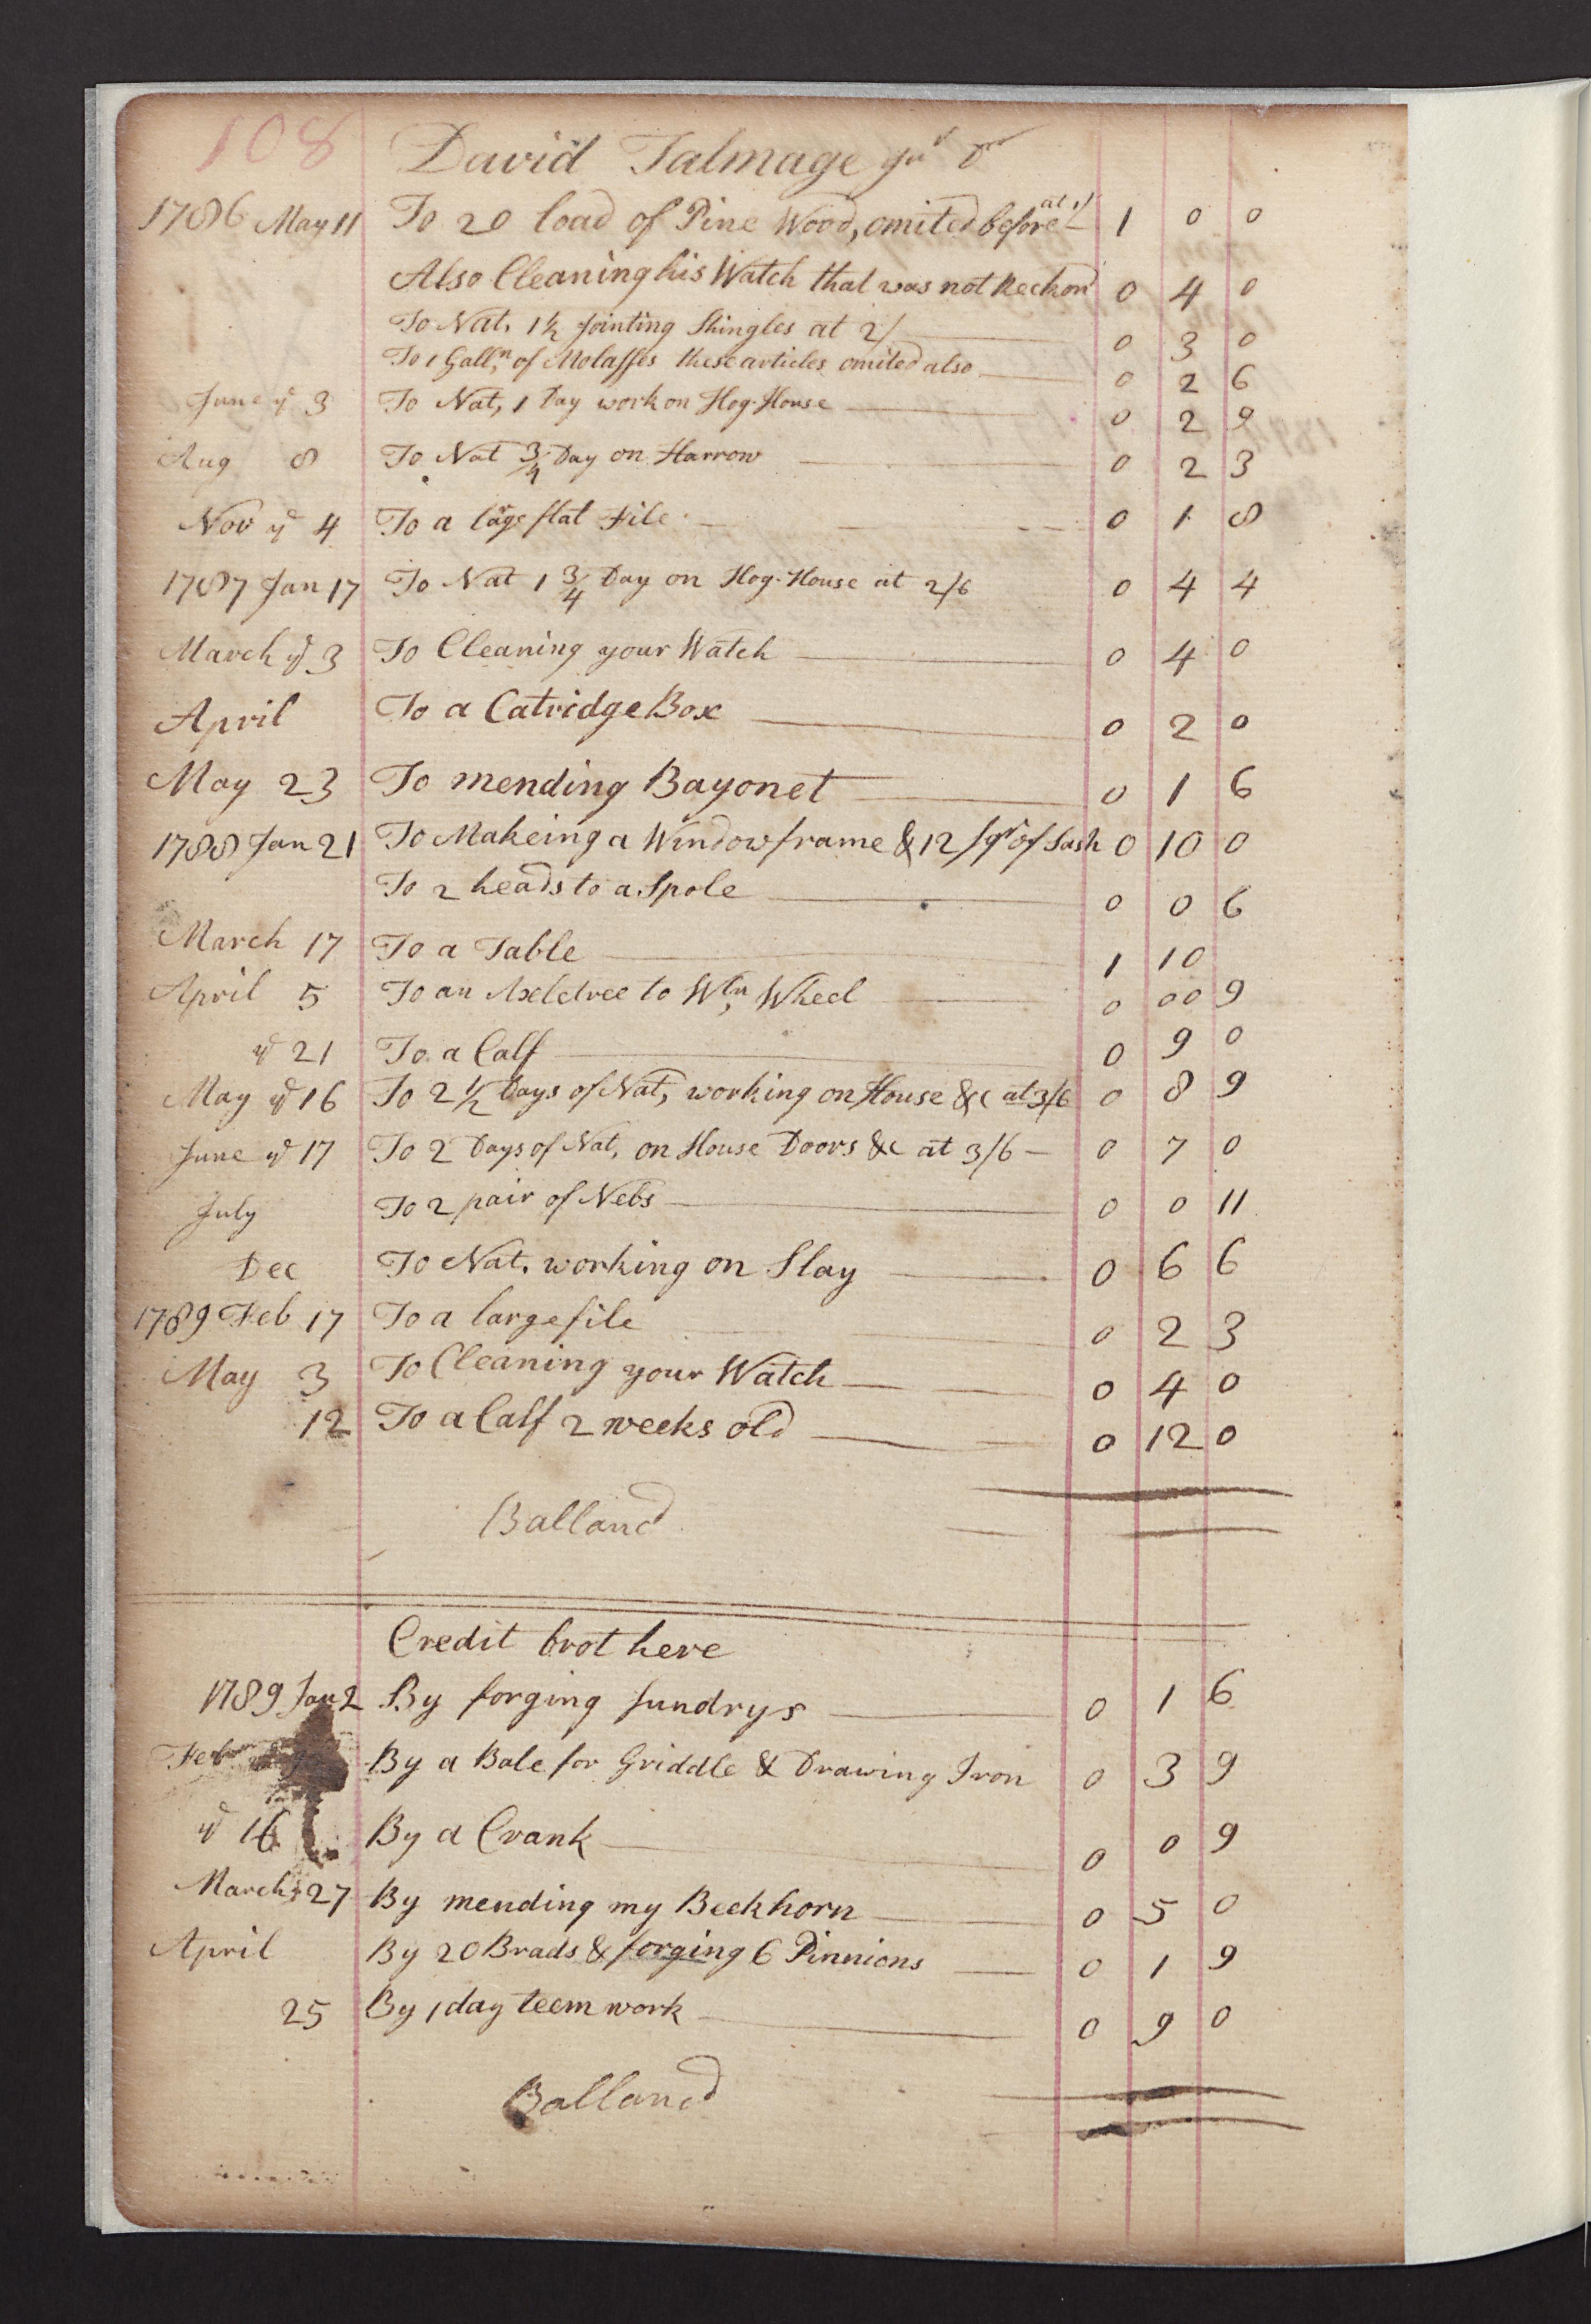 108 David Talmage Junr Dr
1786 May 11 To 20 load of Pine Wood, omited before at 1/ 1 0 0
Also Cleaning his Watch that was not Reckond 0 4 0
To Nat, 1 1/2 Jointing Shingles at 2/ 0 3 0
To 1 Galln, of Molasses these articles omited also 0 2 6
June ye 3 To Nat, 1 Day work on Hog-House 0 2 9
Aug 8 To Nat 3/4 Day on Harrow 0 2 3
Nov ye 4 To a large flat File 0 1 8
1787 Jan 17 To Nat 1 3/4 Day on Hog-House at 2/6 0 4 4
March ye 3 To Cleaning your Watch 0 4 0
April To a Catridge Box 0 2 0
May 23 To mending Bayonet 0 1 6
1788 Jan 21 To Makeing a Window frame & 12 sqr of Sash 0 10 0
To 2 heads to a Spole 0 0 6
March 17 To a Table 1 10
April 5 To an Axeletree to Wln, Wheel 0 00 9
ye 21 To a Calf 0 9 0
May ye 16 To 2 1/2 Days of Nat, working on House &c at 3/6 0 8 9
June ye 17 To 2 Days of Nat, on House Doors &c at 3/6 0 7 0
July To 2 pair of Nebs 0 0 11
Dec To Nat, working on Slay 0 6 6
1789 Feb 17 To a large file 0 2 3
May 3 To Cleaning your Watch 0 4 0
12 To a Calf 2 weeks old 0 12 0
Ballancd
Credit brot here
1789 Jan 2 By forging sundrys 0 1 6
Feb By a Bale for Griddle & Drawing Iron 0 3 9
ye 16 By a Crank 0 0 9
March 27 By mending my Beckhorn 0 5 0
April By 20 Brads & forging 6 Pinnions 0 1 9
25 By 1 day teem work 0 9 0
Ballancd